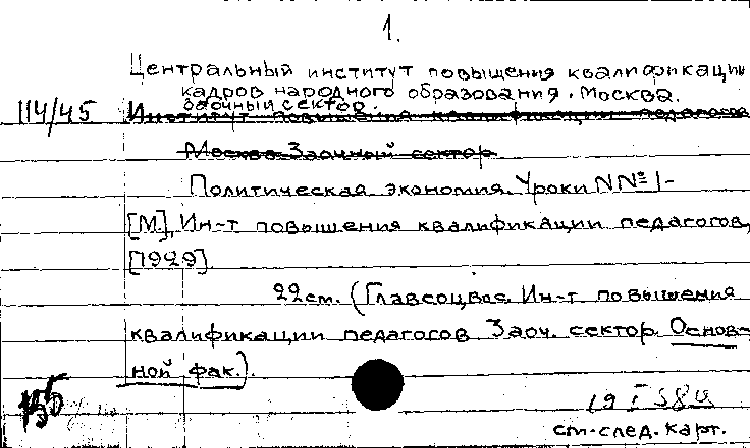 1.
Центральный институт повышения квалификации
кадров народного образования. Москва.
114/45 Заочный сектор.
Институт повышения квалификации педагогов
Москва Заочный сектор
Политическая экономия. Уроки NN° 1-
[М.], Ин-т повышения квалификации педагогов,
[1929]
22 см. (Главсоцвос. Ин-т повышения
квалификации педагогов. Заоч. сектор. Основ-
ной фак.).
см. след. карт.